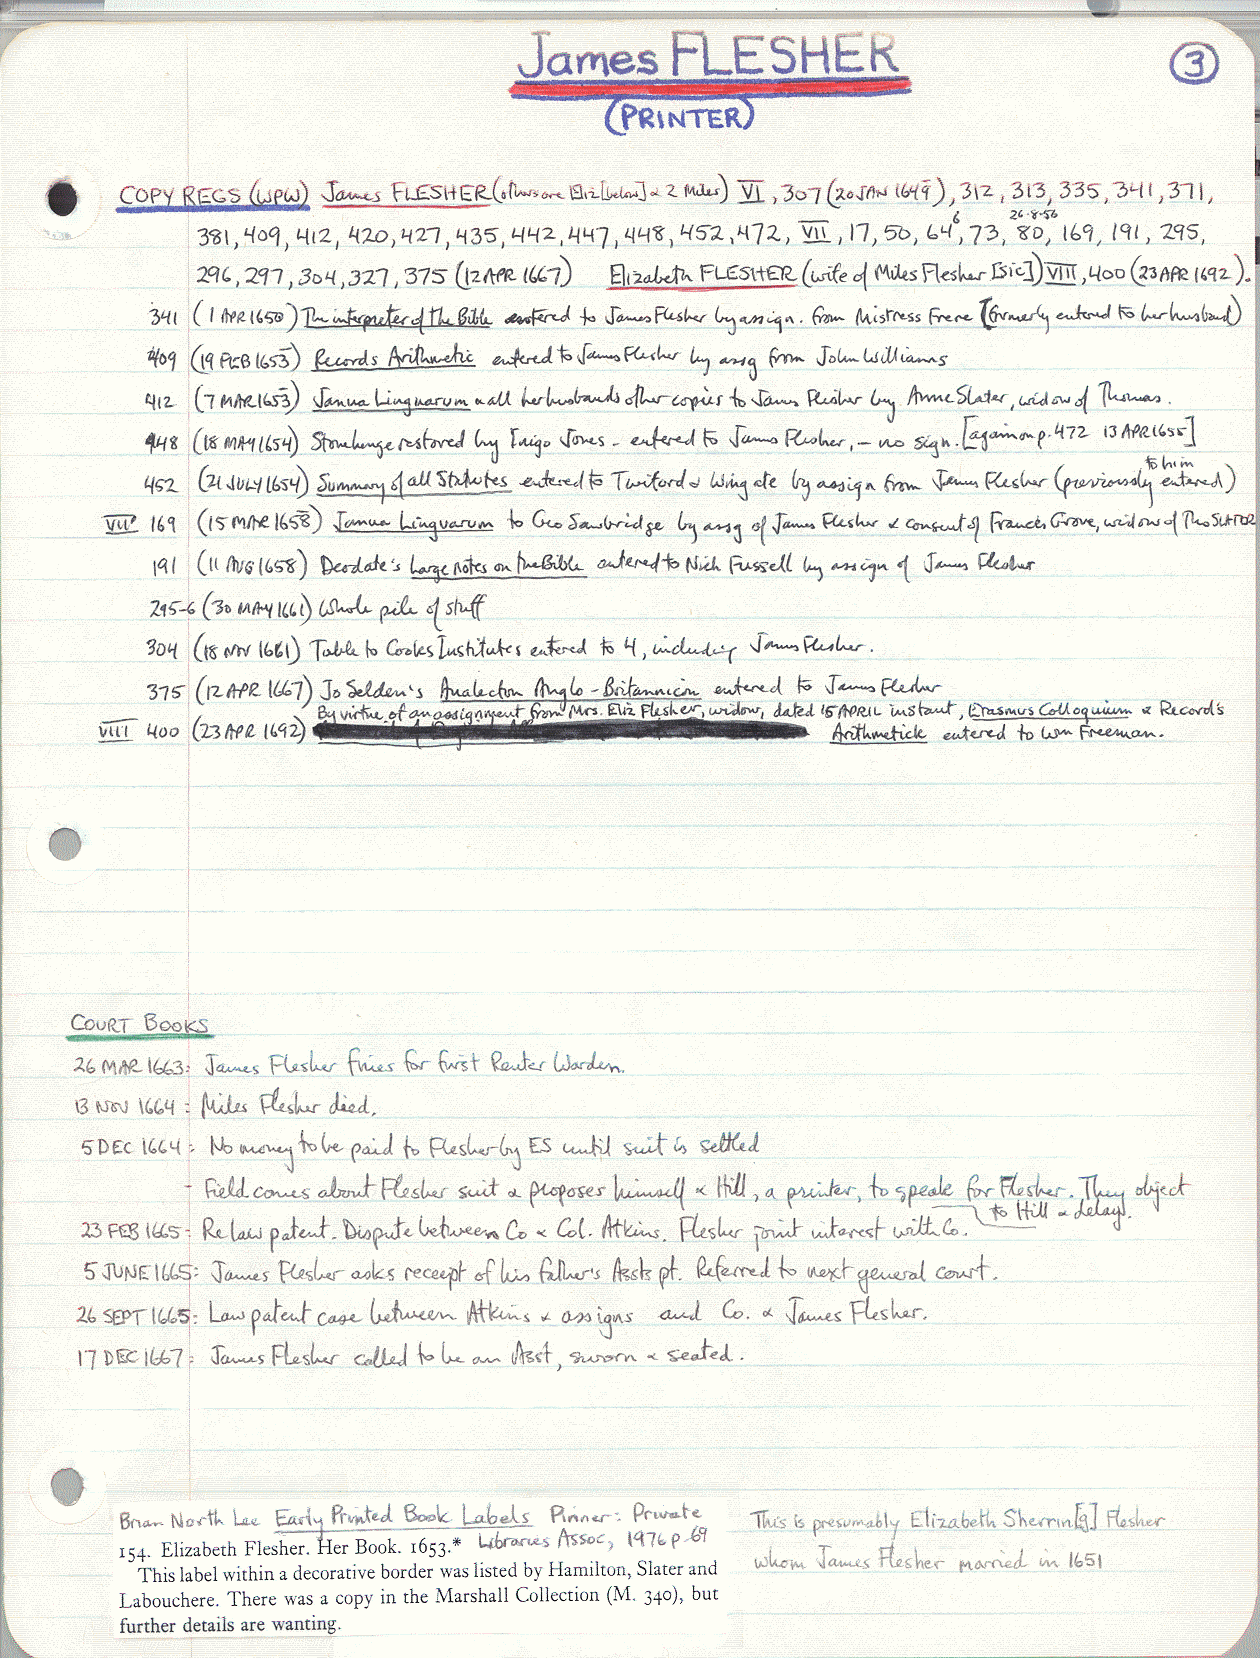 James FLESHER
3
(PRINTER)
COPY REGS (WPW) James FLESHER (others are Eliz [below] & 2 Miles) VI, 307 (20 JAN 1649), 312, 313, 335, 341, 371,
381, 409, 412, 420, 427, 435, 442, 447, 448, 452, 472, VII, 17, 50, 64⁶, 73, 80, 169, 191, 295,
26-8-56
296, 297, 304, 327, 375 (12 APR 1667) Elizabeth FLESHER (wife of Miles Flesher [sic]) VIII, 400 (23 APR 1692).
341 (1 APR 1650) The interpreter of the Bible entered to James Flesher by assign. from Mistress Frere (formerly entered to her husband)
409 (19 FEB 1653) Records Arithmetic entered to James Flesher by assg from John Williams
412 (7 MAR 1653) Janua Linguarum & all her husbands other copies to James Flesher by Anne Slater, widow of Thomas.
448 (18 MAY 1654) Stonehenge restored by Inigo Jones - entered to James Flesher, - no sign. [again on p. 472 13 APR 1655]
452 (21 JULY 1654) Summary of all Statutes entered to Twiford & Wingate by assign from James Flesher (previously entered to him)
VII 169 (15 MAR 1658) Janua Linguarum to Geo Sawbridge by assg of James Flesher & consent of Francis Grove, widow of Tho SLATER
191 (11 AUG 1658) Deodate's Large notes on the Bible entered to Nich Fussell by assign of James Flesher
295-6 (30 MAY 1661) Whole pile of stuff
304 (18 NOV 1661) Table to Cooks Institutes entered to 4, including James Flesher.
375 (12 APR 1667) Jo Selden's Analecton Anglo-Britannicon entered to James Flesher
By virtue of an assignment from Mrs. Eliz Flesher, widow, dated 15 APRIL instant, Erasmus Colloquium & Record's
VIII 400 (23 APR 1692) Arithmetick entered to Wm Freeman.
COURT BOOKS
26 MAR 1663: James Flesher fines for first Renter Warden.
13 NOV 1664: Miles Flesher died.
5 DEC 1664: No money to be paid to Flesher by ES until suit is settled
- Field comes about Flesher suit & proposes himself & Hill, a printer, to speak for Flesher. They object
to Hill & delays.
23 FEB 1665: Re law patent. Dispute between Co & Col. Atkins. Flesher joint interest with Co.
5 JUNE 1665: James Flesher asks receipt of his father's Assts pt. Referred to next general court.
26 SEPT 1665: Law patent case between Atkins & assigns and Co. & James Flesher.
17 DEC 1667: James Flesher called to be an Asst, sworn & seated.
Brian North Lee Early Printed Book Labels Pinner: Private
Libraries Assoc, 1976 p. 69
154. Elizabeth Flesher. Her Book. 1653.*
This label within a decorative border was listed by Hamilton, Slater and
Labouchere. There was a copy in the Marshall Collection (M. 340), but
further details are wanting.
This is presumably Elizabeth Sherrin[g] Flesher
whom James Flesher married in 1651